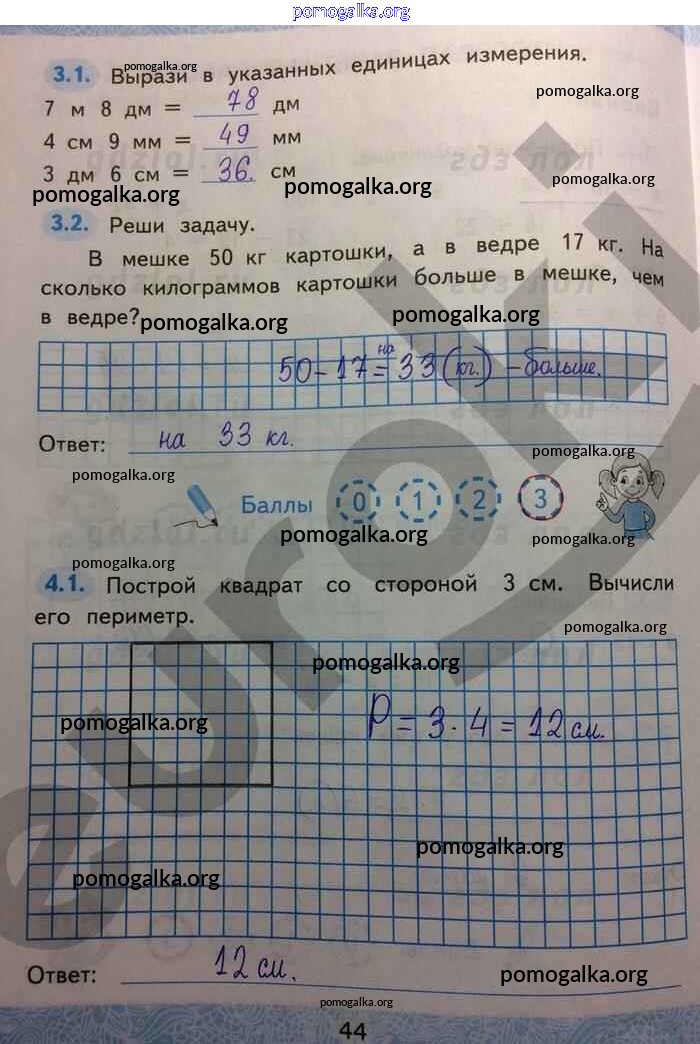 pomogalka.org
3.1. Вырази в указанных единицах измерения.
pomogalka.org
pomogalka.org
7 м 8 дм = 78 дм
4 см 9 мм = 49 мм
3 дм 6 см = 36. см
pomogalka.org pomogalka.org pomogalka.org
3.2. Реши задачу.
В мешке 50 кг картошки, а в ведре 17 кг. На
сколько килограммов картошки больше в мешке, чем
в ведре?
pomogalka.org pomogalka.org
50-17=33(кг.) - на больше.
Ответ: на 33 кг.
pomogalka.org pomogalka.org
Баллы 0 1 2 3
pomogalka.org pomogalka.org
pomogalka.org
4.1. Построй квадрат со стороной 3 см. Вычисли
его периметр.
pomogalka.org
pomogalka.org
pomogalka.org
P=3·4=12 см.
pomogalka.org
pomogalka.org
Ответ: 12 см.
pomogalka.org
pomogalka.org
44
euroki